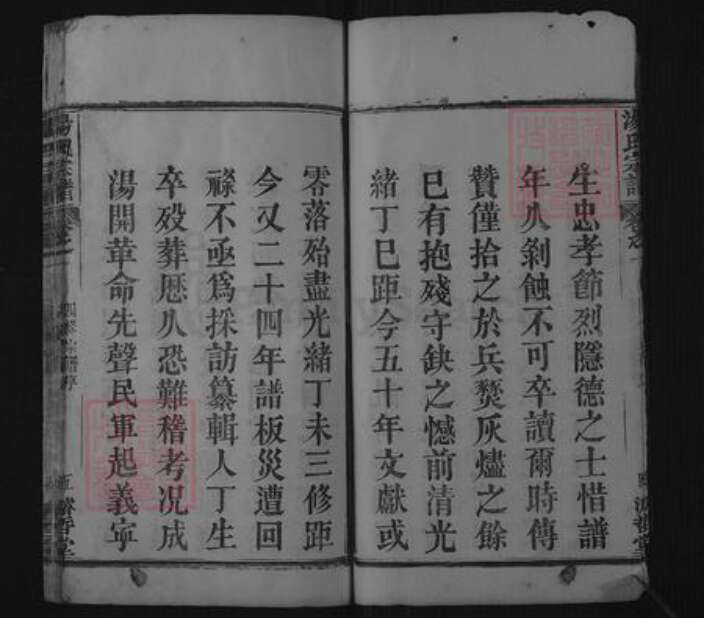 生忠孝節烈隱德之士惜譜
年久剝蝕不可卒讀爾時傳
贊僅拾之於兵燹灰燼之餘
已有抱殘守缺之憾前清光
緒丁巳距今五十年文獻或
零落殆盡光緒丁未三修距
今又二十四年譜板災遭回
祿不亟爲採訪纂輯人丁生
卒歿葬歷久恐難稽考况成
湯開革命先聲民軍起義寜
湯氏宗譜